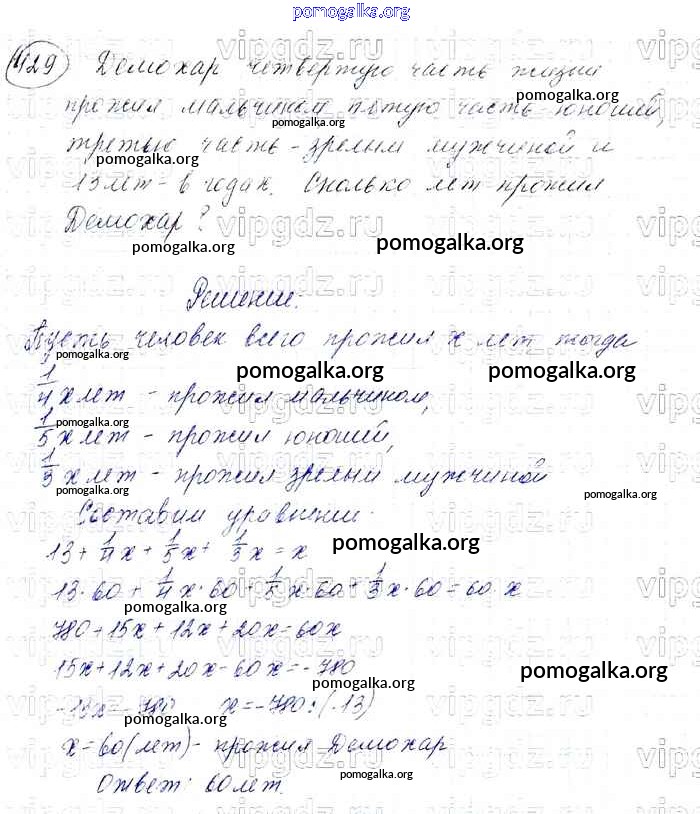 pomogalka.org
1129 Демохар четвертую часть жизни
прожил мальчиком пятую часть - юношей,
третью часть - зрелым мужчиной и
13 лет - в годах. Сколько лет прожил
Демохар?
pomogalka.org
Решение:
Пусть человек всего прожил x лет тогда
1/4 x лет - прожил мальчиком,
1/5 x лет - прожил юношей,
1/3 x лет - прожил зрелым мужчиной
Составим уравнение:
13 + 1/4 x + 1/5 x + 1/3 x = x
13·60 + 1/4 x·60 + 1/5 x·60 + 1/3 x·60 = 60·x
780 + 15x + 12x + 20x = 60x
15x + 12x + 20x - 60x = -780
-13x = -780 x = -780 : (-13)
x = 60 (лет) - прожил Демохар
Ответ: 60 лет.
pomogalka.org